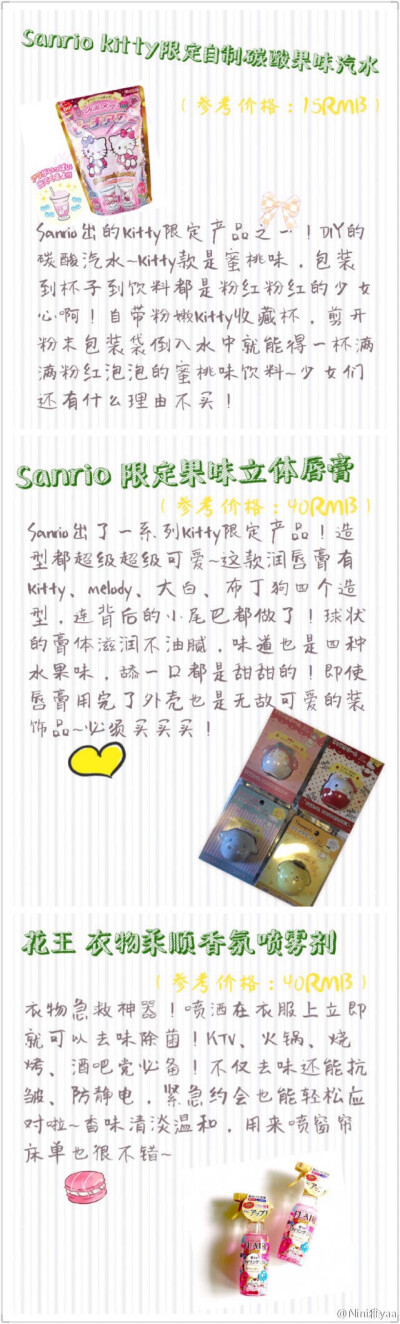 Sanrio kitty限定自制碳酸果味汽水
（参考价格：15RMB）
Sanrio出的Kitty限定产品之一！DIY的
碳酸汽水~Kitty款是蜜桃味，包装
到杯子到饮料都是粉红粉红的少女
心啊！自带粉嫩Kitty收藏杯，剪开
粉末包装袋倒入水中就能得一杯满
满粉红泡泡的蜜桃味饮料~少女们
还有什么理由不买！
Sanrio 限定果味立体唇膏
（参考价格：40RMB）
Sanrio出了一系列Kitty限定产品！造
型都超级超级可爱~这款润唇膏有
Kitty、melody、大白、布丁狗四个造
型，连背后的小尾巴都做了！球状
的膏体滋润不油腻，味道也是四种
水果味，舔一口都是甜甜的！即使
唇膏用完了外壳也是无敌可爱的装
饰品~必须买买买！
花王 衣物柔顺香氛喷雾剂
（参考价格：40RMB）
衣物急救神器！喷洒在衣服上立即
就可以去味除菌！KTV、火锅、烧
烤、酒吧党必备！不仅去味还能抗
皱、防静电，紧急约会也能轻松应
对啦~香味清淡温和，用来喷窗帘
床单也很不错~